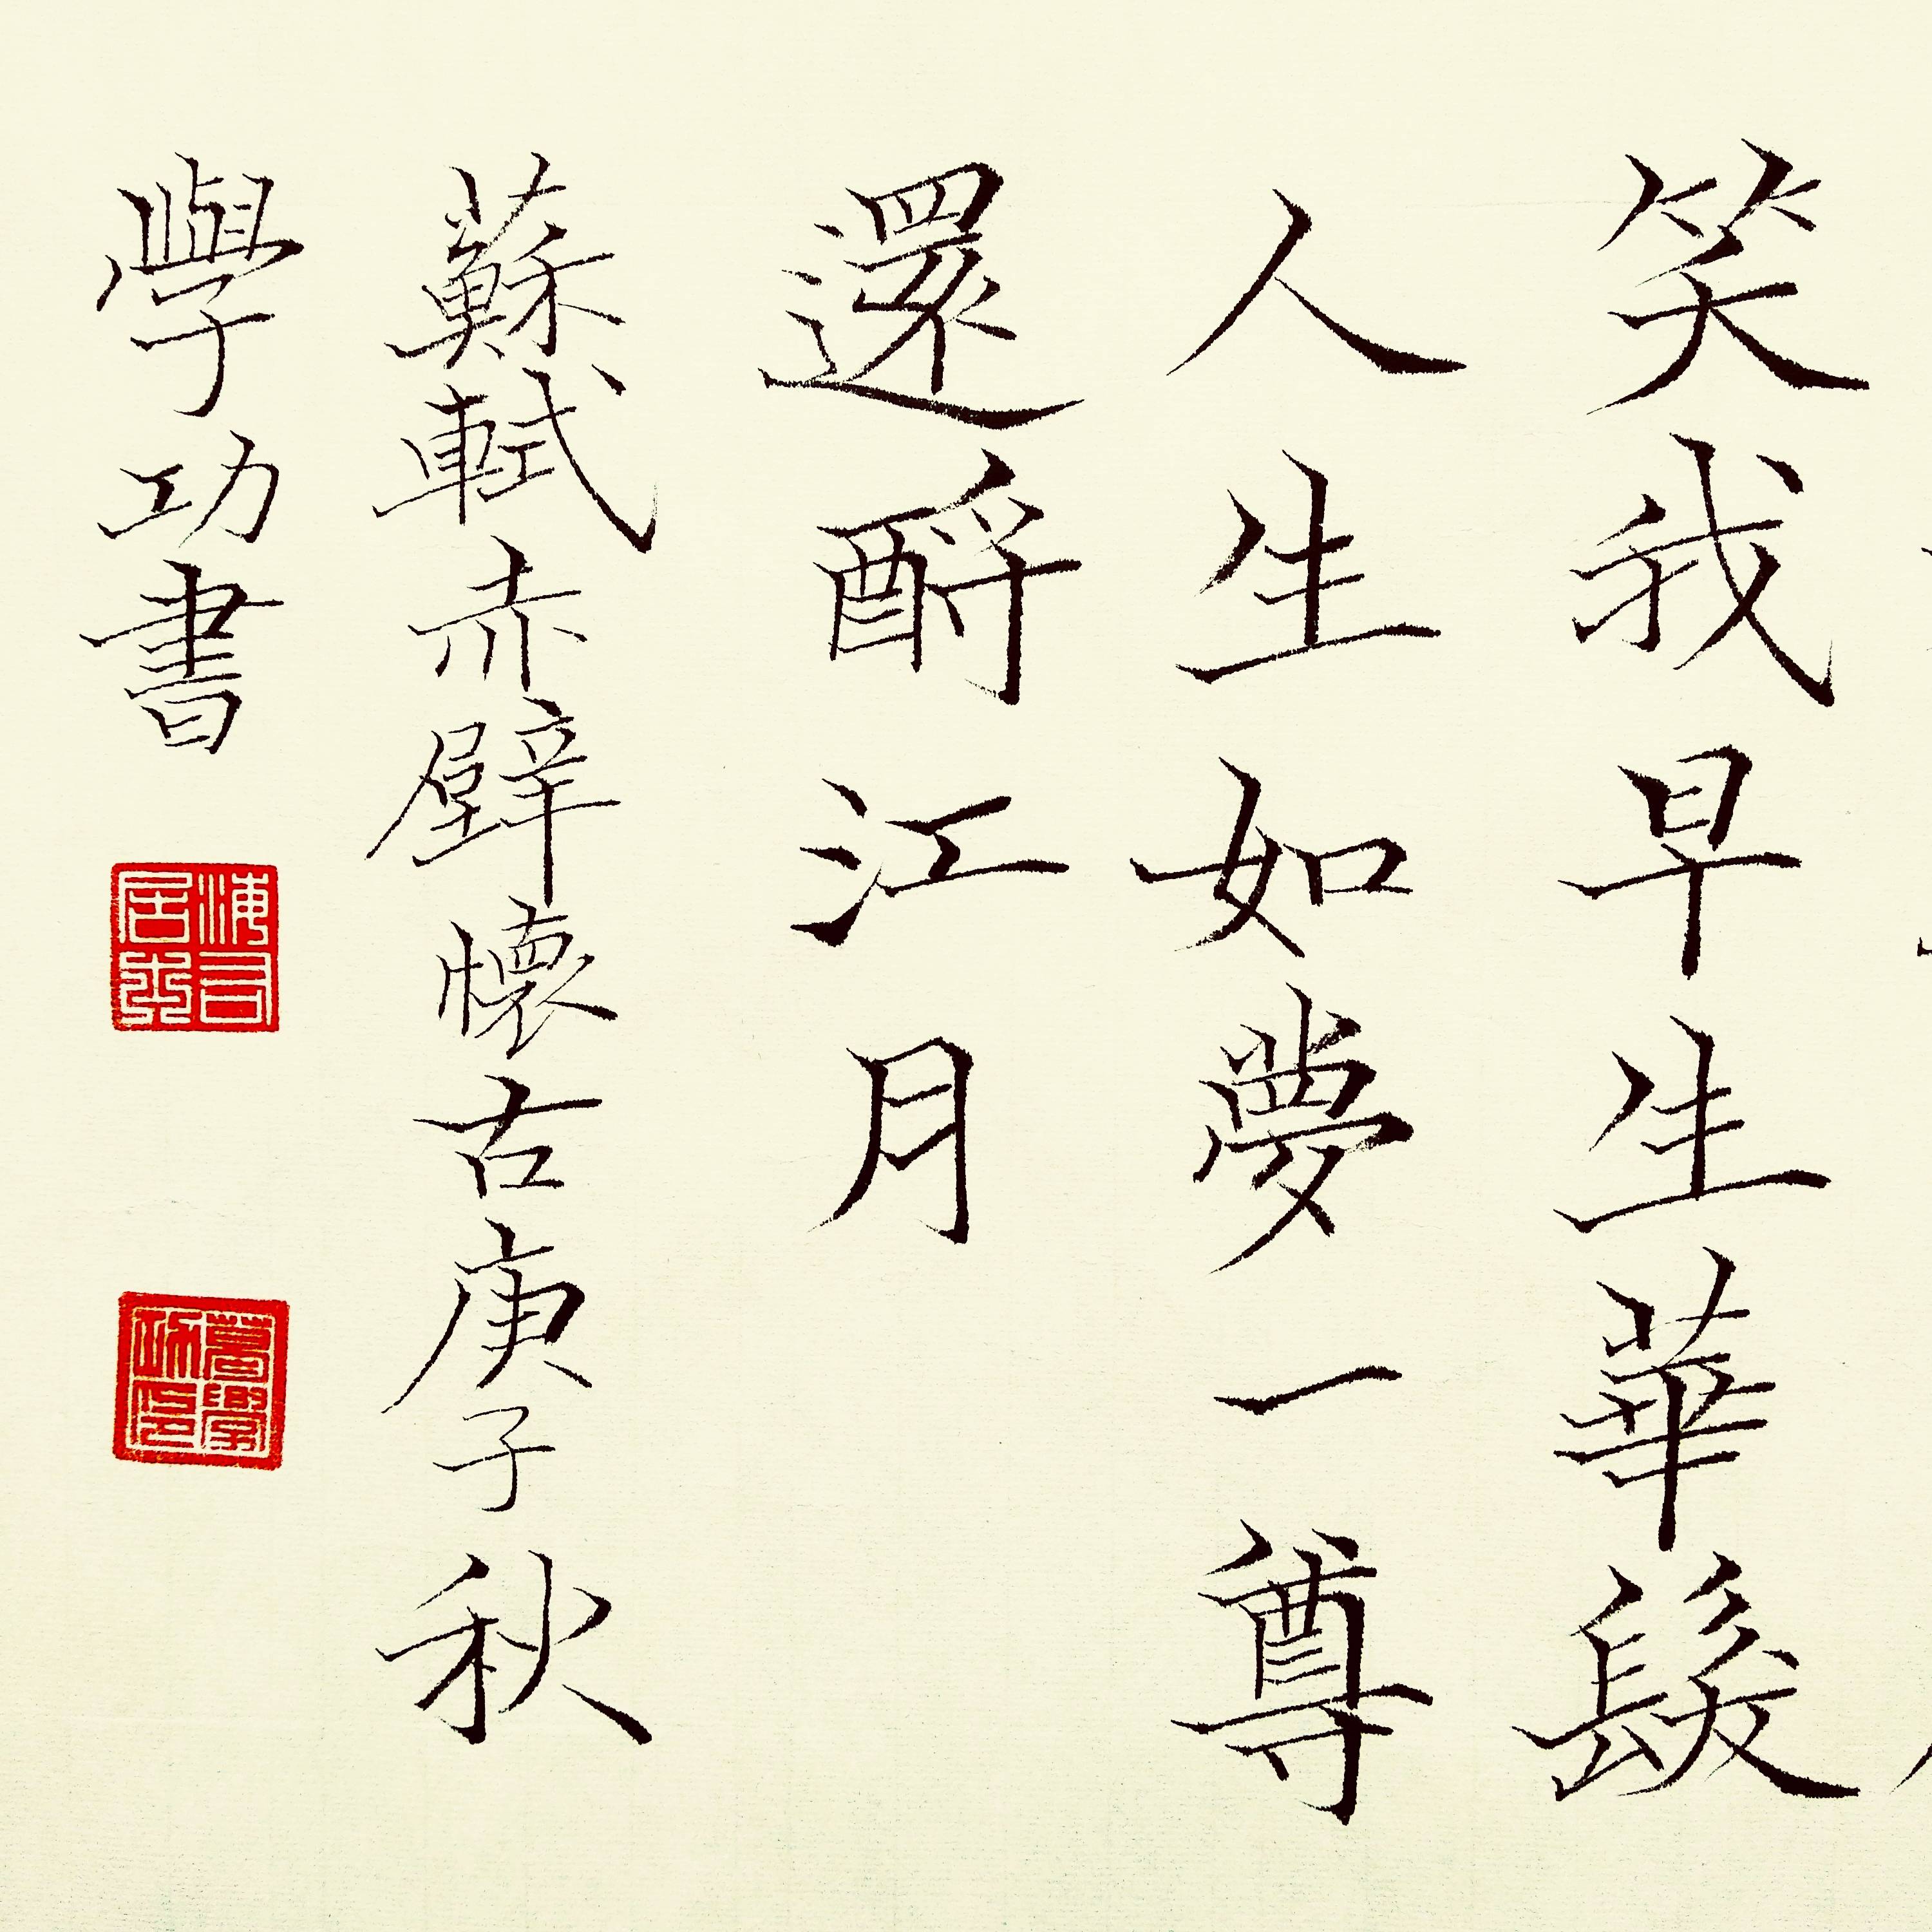 笑我早生華髮
人生如夢一尊
還酹江月
蘇軾赤壁懷古庚子秋
學功書